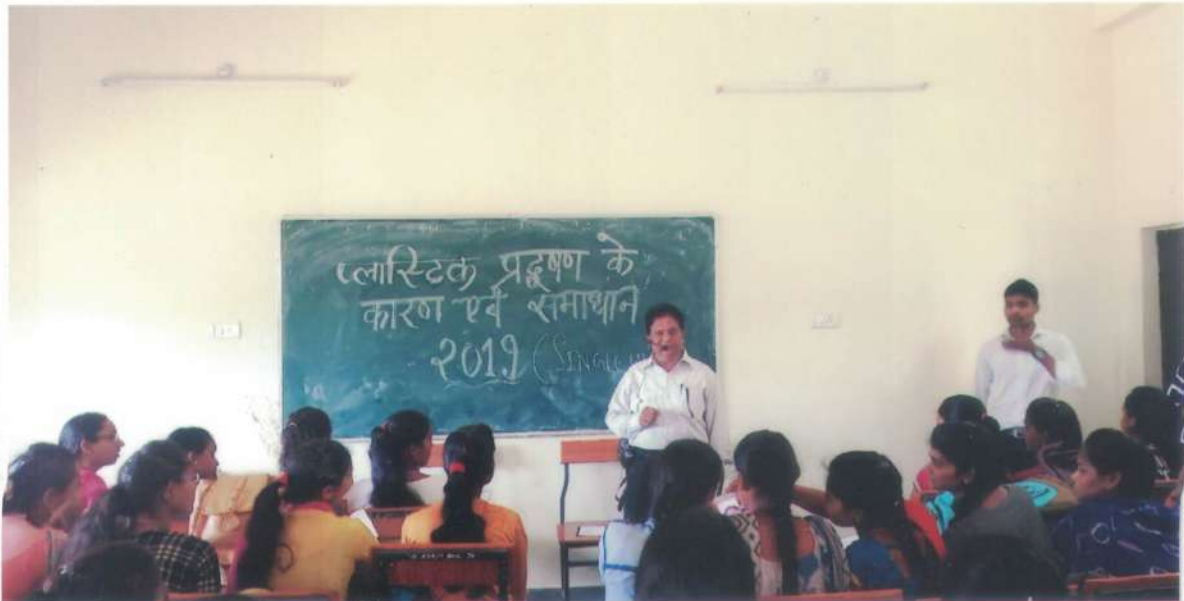 प्लास्टिक प्रदूषण के
कारण एवं समाधान
2019 (SINGLE